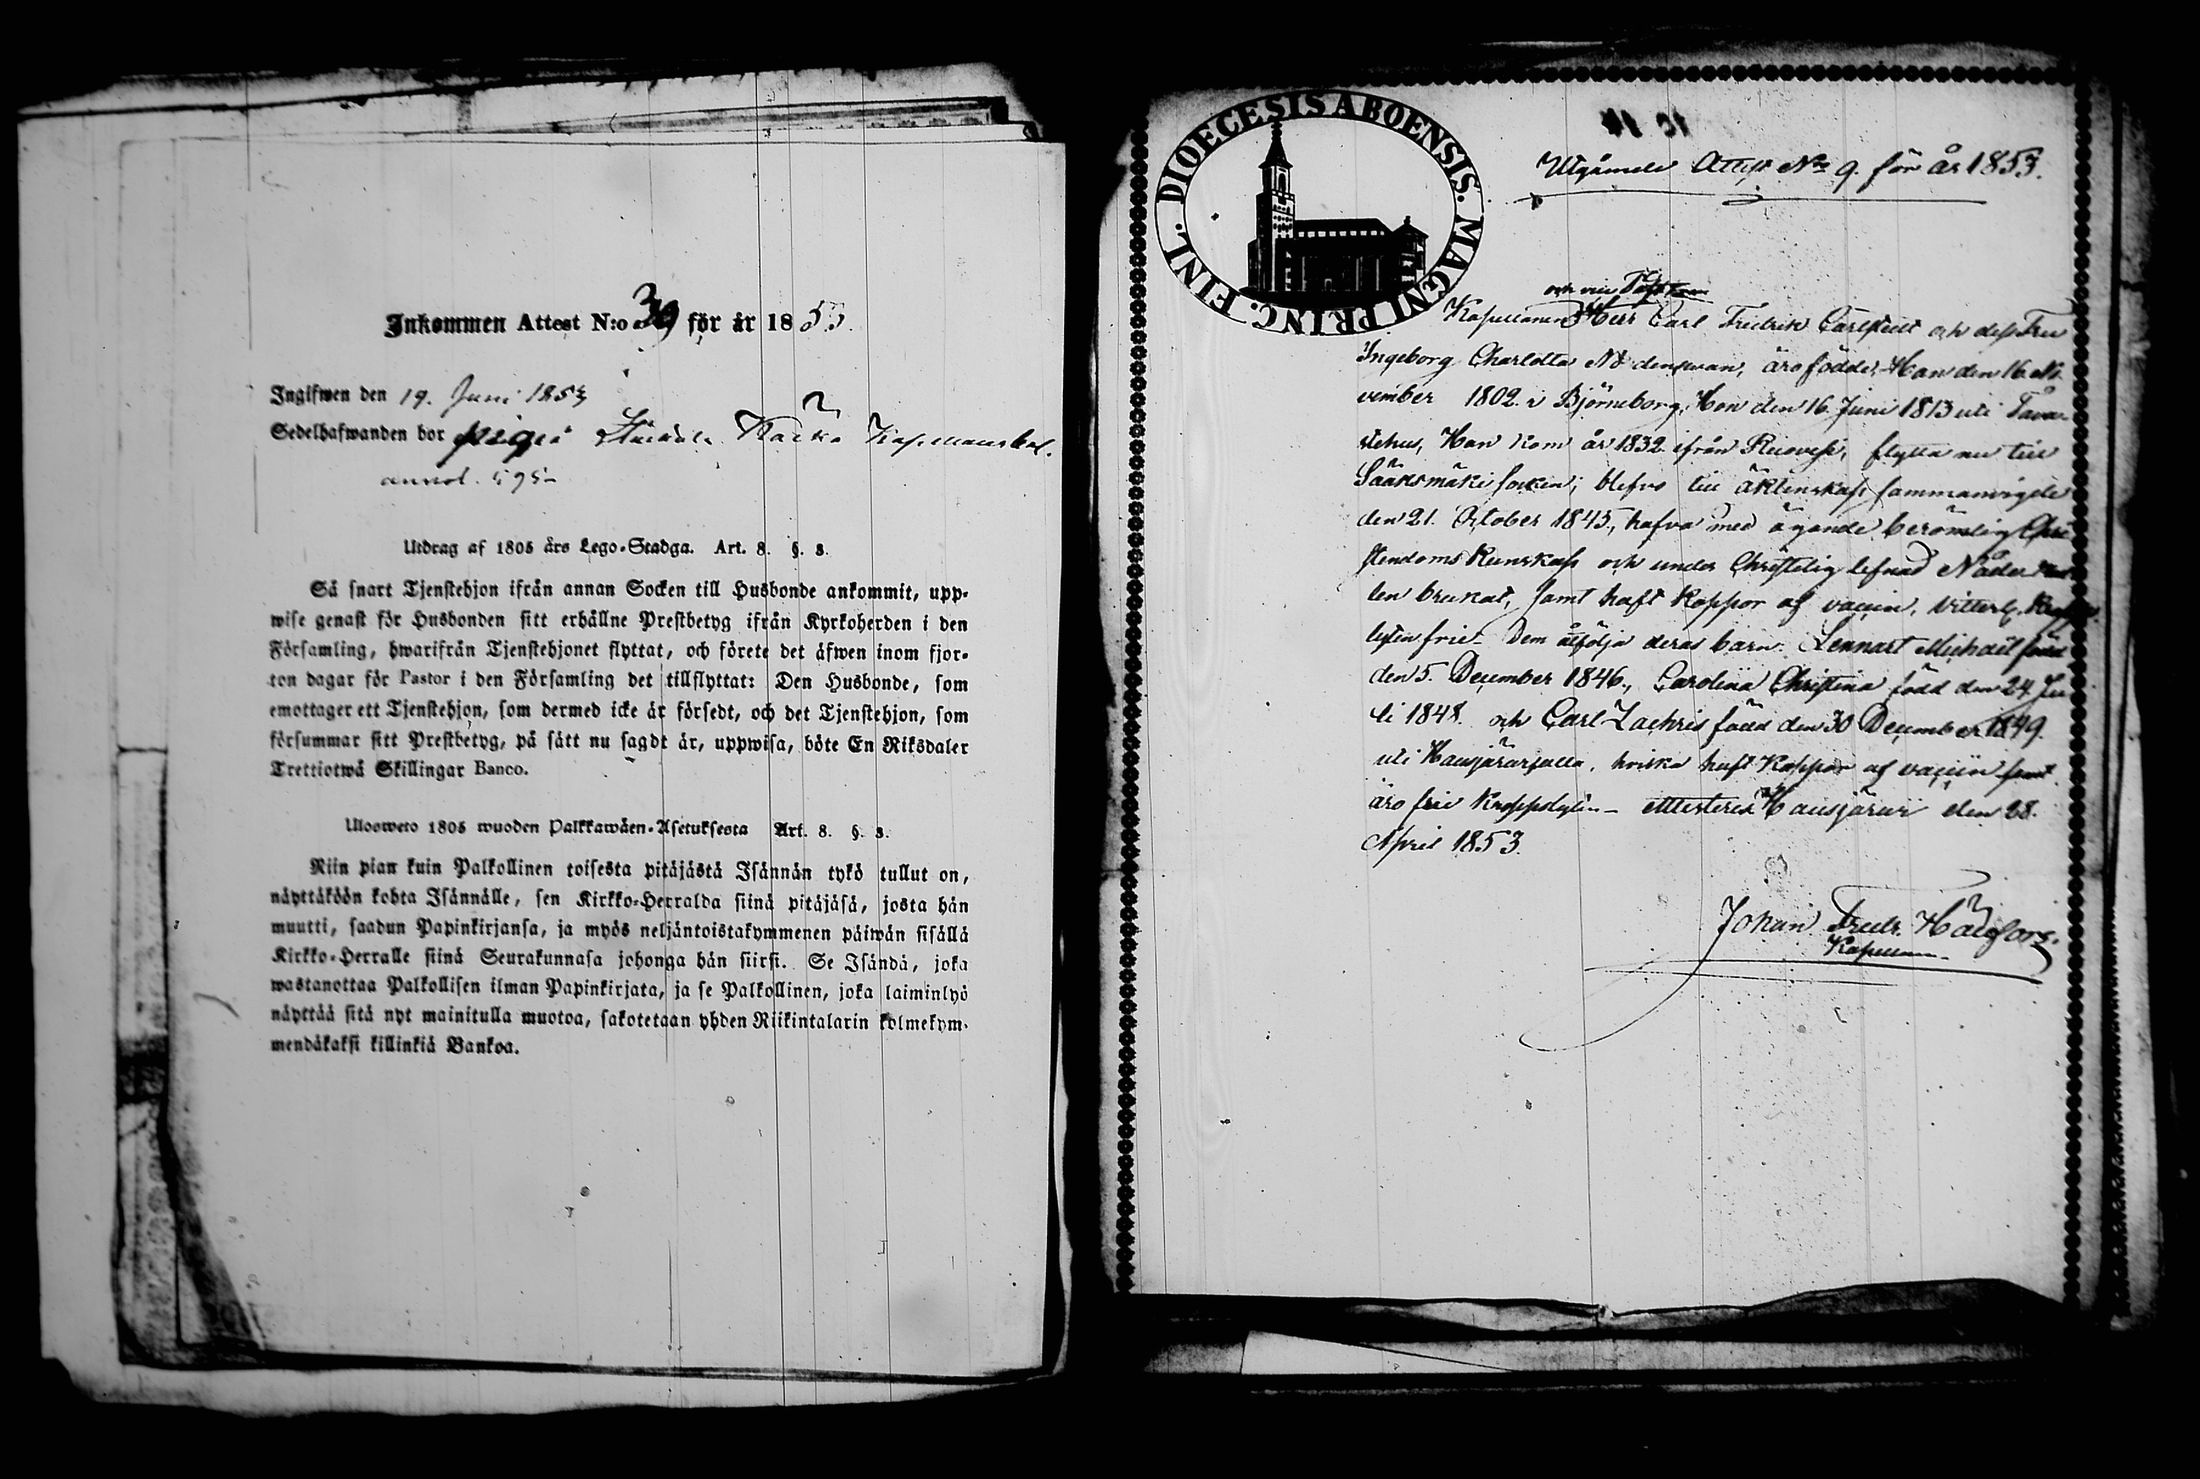 Inkommen Attest N:o 39 för år 1853.
Ingifwen den 19. Juni 1853
Sedelhafwanden bor
annot. 595
Utdrag af 1805 års Lego-Stadga. Art. 8. §. 8.
Så snart Tjenstehjon ifrån annan Socken till Husbonde ankommit, upp-
wise genast för Husbonden sitt erhållne Prestbetyg ifrån Kyrkoherden i den
Församling, hwarifrån Tjenstehjonet flyttat, och förete det äfwen inom fjor-
ton dagar för Pastor i den Församling det tillflyttat: Den Husbonde, som
emottager ett Tjenstehjon, som dermed icke är försedt, och det Tjenstehjon, som
försummar sitt Prestbetyg, på sätt nu sagdt är, uppwisa, böte En Riksdaler
Trettiotwå Skillingar Banco.
Ulosweto 1805 wuoden Palkkawäen-Asetuksesta Art. 8. §. 8.
Niin pian kuin Palkollinen toisesta pitäjästä Isännän tykö tullut on,
näyttäköön kohta Isännälle, sen Kirkko-Herralda siinä pitäjäsä, josta hän
muutti, saadun Papinkirjansa, ja myös neljäntoistakymmenen päiwän sisällä
Kirkko-Herralle siinä Seurakunnasa johonga hän siirsi. Se Isändä, joka
wastanottaa Palkollisen ilman Papinkirjata, ja se Palkollinen, joka laiminlyö
näyttää sitä nyt mainitulla muotoa, sakotetaan yhden Riikintalarin kolmekym-
mendäkaksi killinkiä Bankoa.
DIOECESIS ABOENSIS. MAGNI PRINC. FINL.
Utgående Attest No 9. för år 1853.
Kapellanen Herr Carl Fredrik Carlstedt och dess Fru
Ingeborg Charlotta Nodenswan, äro födde, Han den 16 No-
vember 1802 i Björneborg, Hon den 16 Juni 1813 uti Tava-
stehus, Han kom år 1832 ifrån Ruovesi, flytta nu till
Sääksmäki socken; blefvo till äktenskap sammanvigde
den 21. October 1845, hafva med ägande berömlig Chri-
stendoms Kunskap och under Christelig lefnad Nåde
len brukat, samt haft Koppor af vaccin,
lyten frie. Dem åtfölja deras barn: Lennart Michael född
den 5. December 1846., Carolina Christina född den 24. Ju-
li 1848. och Carl Zachris född den 30 December 1849.
uti Hausjärvi hvilka haft Koppor af vaccin samt
äro frie Kroppslyten. Attesterar Hausjärvi den 28.
April 1853.
Johan Fredr.
Kapellan